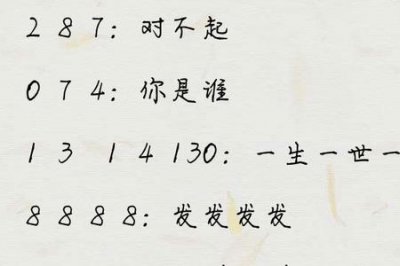 2 8 7：对不起
0 7 4：你是谁
1 3 1 4 130：一生一世一
8 8 8 8：发发发发